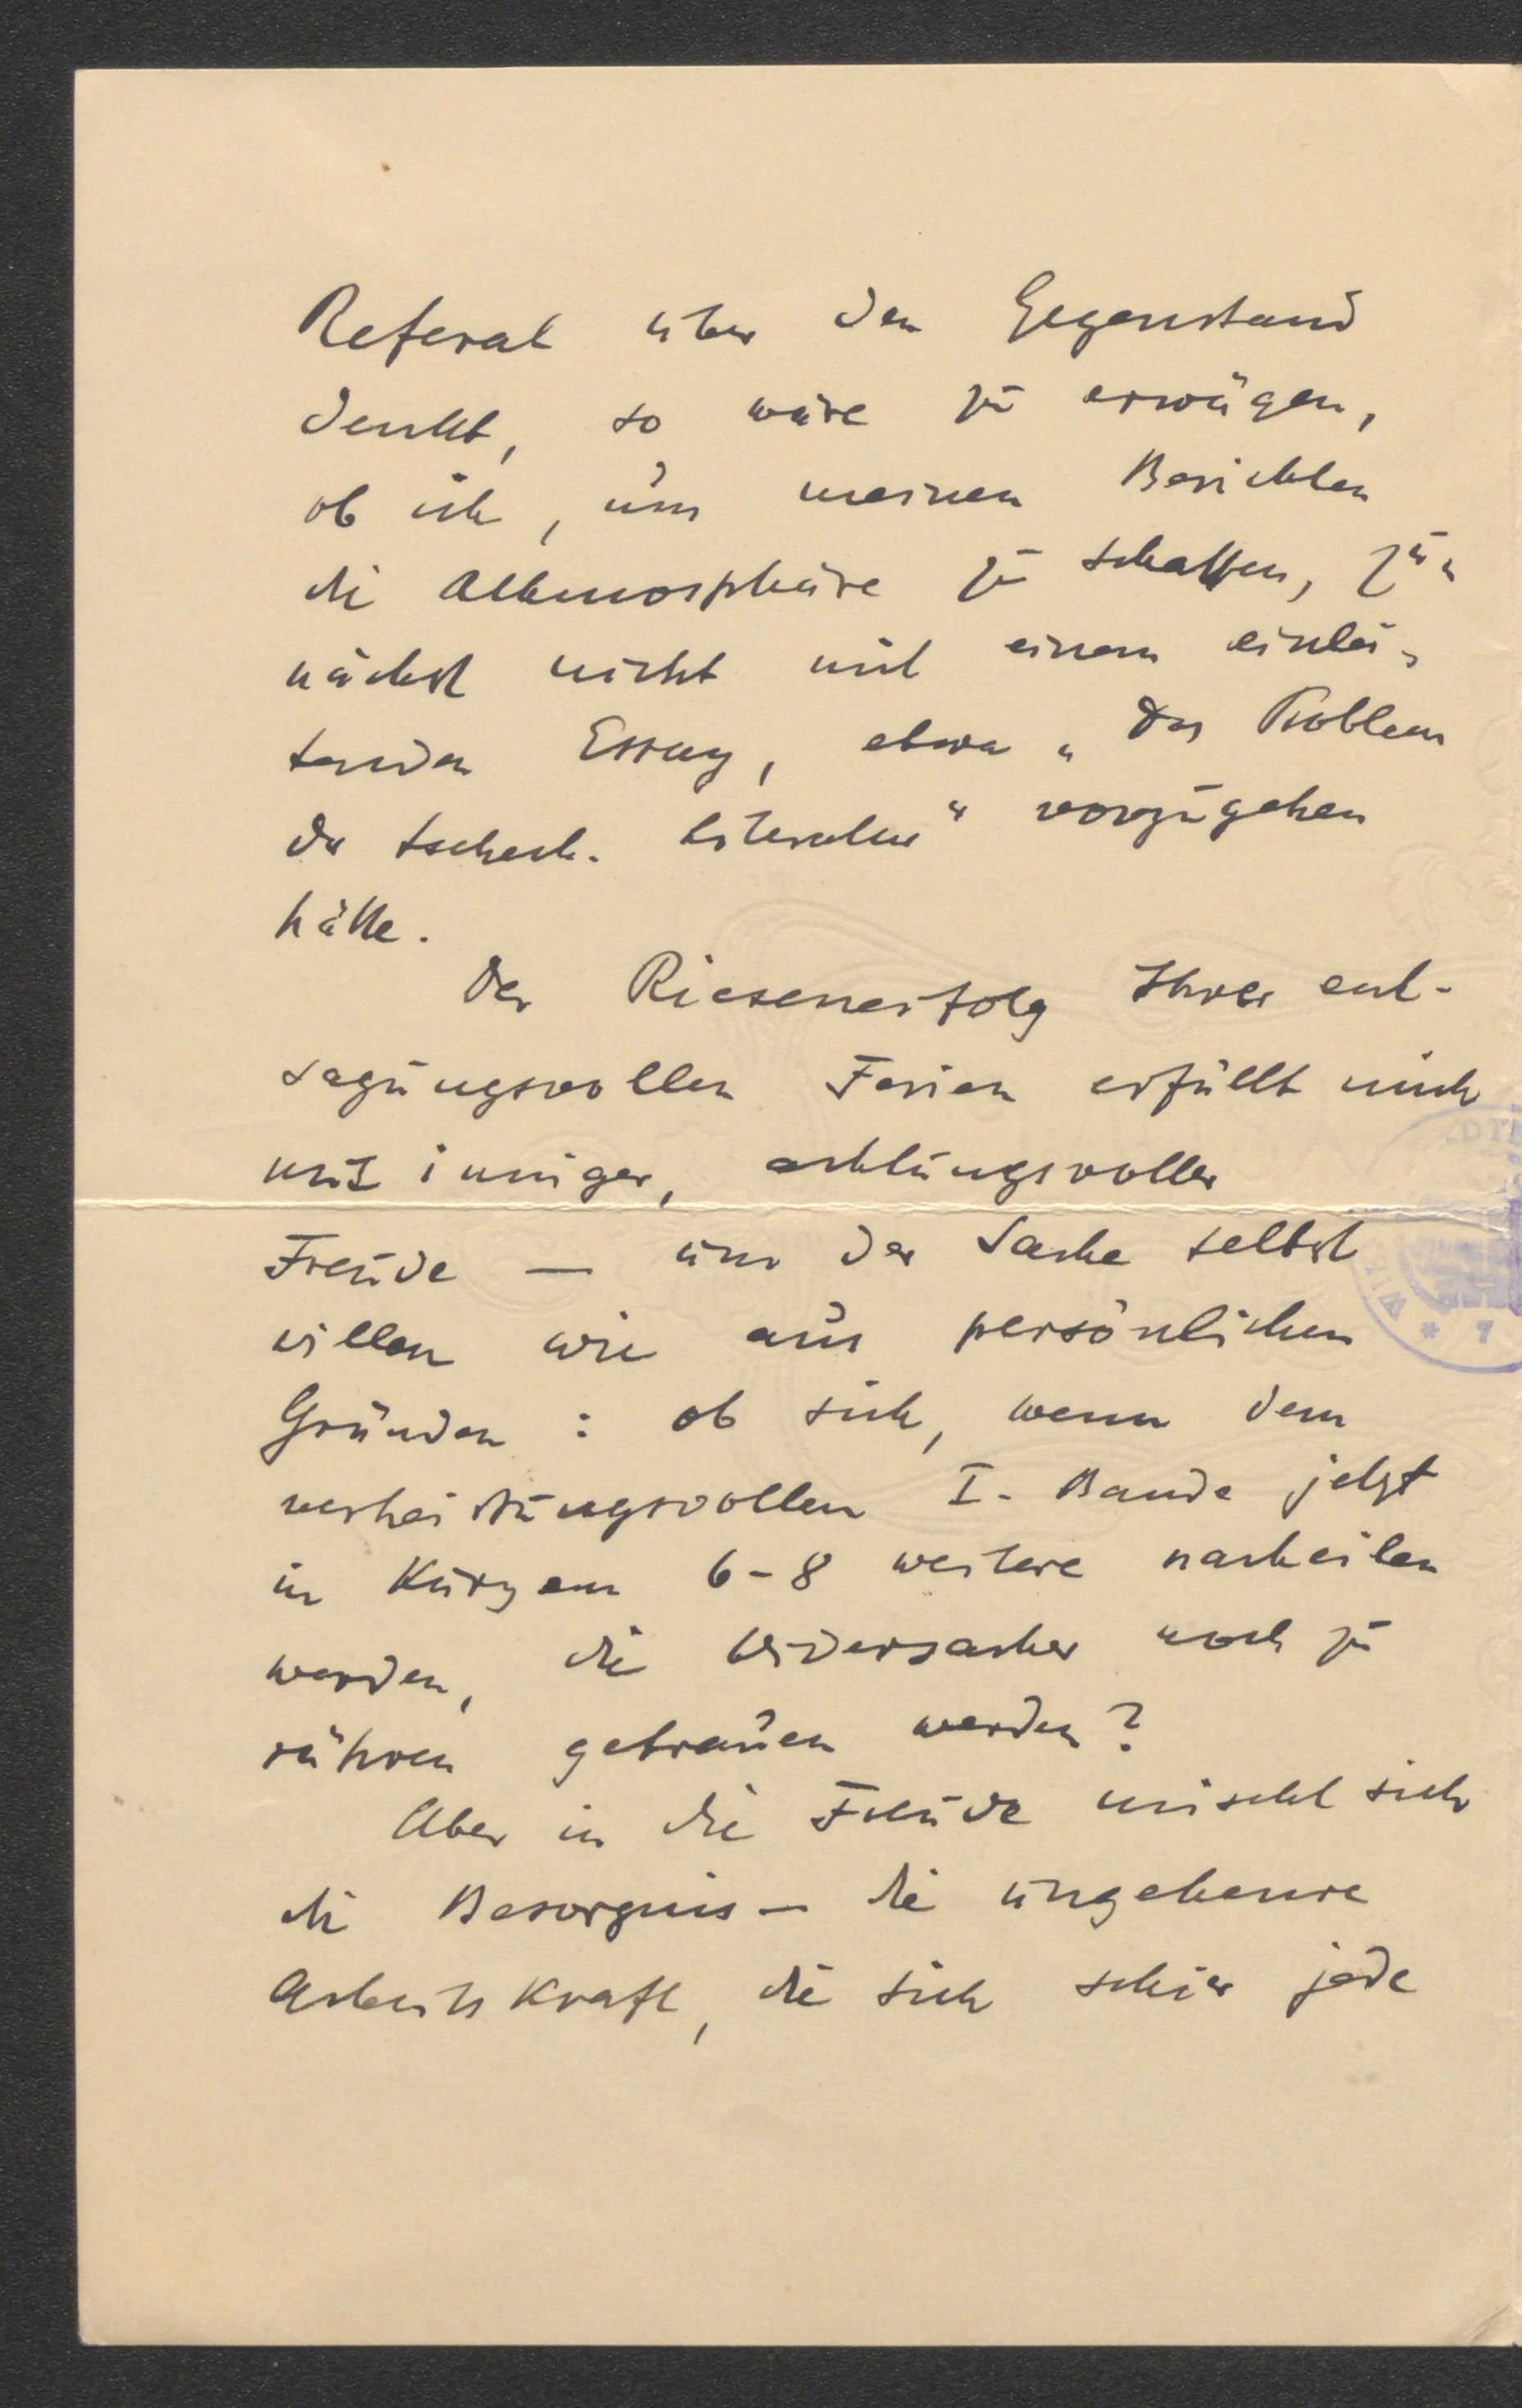 Referat über den Gegenstand
denkt, so wäre zu erwägen,
ob ich, um meinen Berichten
die Athmosphäre zu schaffen, zu=
nächst nicht mit einem einlei=
tenden Essay, etwa „Das Problem
der tschech. Literatur“ vorzugehen
hätte.
Der Riesenerfolg Ihrer ent-
sagungsvollen Ferien erfüllt mich
mit inniger, achtungsvoller
Freude — um der Sache selbst
willen wie aus persönlichen
Gründen: ob sich, wenn dem
verheißungsvollen I. Bande jetzt
in Kürzem 6-8 weitere nacheilen
werden, die Widersacher noch zu
rühren getrauen werden?
Aber in die Freude mischt sich
die Besorgnis — die ungeheure
Arbeitskraft, die sich schier jede
WIE
* 7